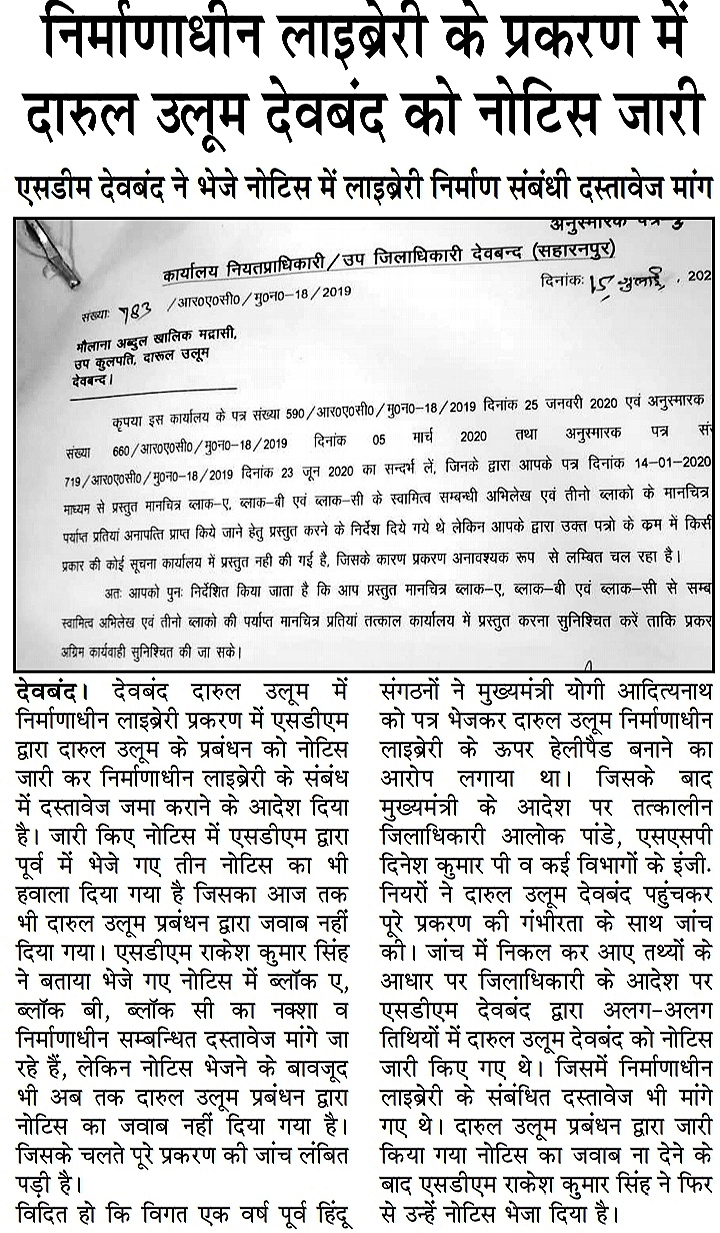 निर्माणाधीन लाइब्रेरी के प्रकरण में
दारुल उलूम देवबंद को नोटिस जारी
एसडीम देवबंद ने भेजे नोटिस में लाइब्रेरी निर्माण संबंधी दस्तावेज मांग
अनुस्मारक पत्र
कार्यालय नियतप्राधिकारी/उप जिलाधिकारी देवबन्द (सहारनपुर)
संख्याः 783 /आर०ए०सी०/मु०न०-18/2019
दिनांकः 15 जुलाई, 202
मौलाना अब्दुल खालिक मद्रासी,
उप कुलपति, दारूल उलूम
देवबन्द।
कृपया इस कार्यालय के पत्र संख्या 590/आर०ए०सी०/मु०न०-18/2019 दिनांक 25 जनवरी 2020 एवं अनुस्मारक
संख्या 660/आर०ए०सी०/मु०न०-18/2019 दिनांक 05 मार्च 2020 तथा अनुस्मारक पत्र सं
719/आर०ए०सी०/मु०न०-18/2019 दिनांक 23 जून 2020 का सन्दर्भ लें, जिनके द्वारा आपके पत्र दिनांक 14-01-2020
माध्यम से प्रस्तुत मानचित्र ब्लाक-ए, ब्लाक-बी एवं ब्लाक-सी के स्वामित्व सम्बन्धी अभिलेख एवं तीनो ब्लाको के मानचित्र
पर्याप्त प्रतियां अनापत्ति प्राप्त किये जाने हेतु प्रस्तुत करने के निर्देश दिये गये थे लेकिन आपके द्वारा उक्त पत्रो के क्रम में किसी
प्रकार की कोई सूचना कार्यालय में प्रस्तुत नही की गई है, जिसके कारण प्रकरण अनावश्यक रूप से लम्बित चल रहा है।
अतः आपको पुनः निर्देशित किया जाता है कि आप प्रस्तुत मानचित्र ब्लाक-ए, ब्लाक-बी एवं ब्लाक-सी से सम्ब
स्वामित्व अभिलेख एवं तीनो ब्लाको की पर्याप्त मानचित्र प्रतियां तत्काल कार्यालय में प्रस्तुत करना सुनिश्चित करें ताकि प्रकर
अग्रिम कार्यवाही सुनिश्चित की जा सके।
देवबंद। देवबंद दारुल उलूम में
निर्माणाधीन लाइब्रेरी प्रकरण में एसडीएम
द्वारा दारुल उलूम के प्रबंधन को नोटिस
जारी कर निर्माणाधीन लाइब्रेरी के संबंध
में दस्तावेज जमा कराने के आदेश दिया
है। जारी किए नोटिस में एसडीएम द्वारा
पूर्व में भेजे गए तीन नोटिस का भी
हवाला दिया गया है जिसका आज तक
भी दारुल उलूम प्रबंधन द्वारा जवाब नहीं
दिया गया। एसडीएम राकेश कुमार सिंह
ने बताया भेजे गए नोटिस में ब्लॉक ए,
ब्लॉक बी, ब्लॉक सी का नक्शा व
निर्माणाधीन सम्बन्धित दस्तावेज मांगे जा
रहे हैं, लेकिन नोटिस भेजने के बावजूद
भी अब तक दारुल उलूम प्रबंधन द्वारा
नोटिस का जवाब नहीं दिया गया है।
जिसके चलते पूरे प्रकरण की जांच लंबित
पड़ी है।
विदित हो कि विगत एक वर्ष पूर्व हिंदू
संगठनों ने मुख्यमंत्री योगी आदित्यनाथ
को पत्र भेजकर दारुल उलूम निर्माणाधीन
लाइब्रेरी के ऊपर हेलीपैड बनाने का
आरोप लगाया था। जिसके बाद
मुख्यमंत्री के आदेश पर तत्कालीन
जिलाधिकारी आलोक पांडे, एसएसपी
दिनेश कुमार पी व कई विभागों के इंजी-
नियरों ने दारुल उलूम देवबंद पहुंचकर
पूरे प्रकरण की गंभीरता के साथ जांच
की। जांच में निकल कर आए तथ्यों के
आधार पर जिलाधिकारी के आदेश पर
एसडीएम देवबंद द्वारा अलग-अलग
तिथियों में दारुल उलूम देवबंद को नोटिस
जारी किए गए थे। जिसमें निर्माणाधीन
लाइब्रेरी के संबंधित दस्तावेज भी मांगे
गए थे। दारुल उलूम प्रबंधन द्वारा जारी
किया गया नोटिस का जवाब ना देने के
बाद एसडीएम राकेश कुमार सिंह ने फिर
से उन्हें नोटिस भेजा दिया है।